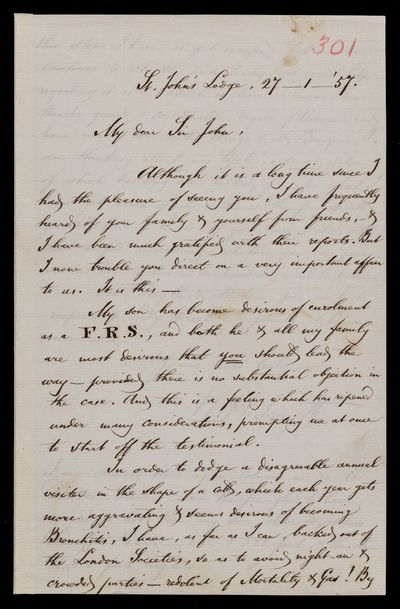 301
St. John's Lodge, 27 — 1 — '57.
My dear Sir John,
Although it is a long time since I
had the pleasure of seeing you, I have frequently
heard of your family & yourself from friends, &
I have been much gratified with their reports. But
I now trouble you direct on a very important affair
to us. It is this —
My son has become desirous of enrolment
as a F.R.S., and both he & all my family
are most desirous that you should lead the
way — provided there is no substantial objection in
the case. And this is a feeling which has ripened
under many considerations, prompting me at once
to start off the testimonial.
In order to dodge a disagreeable annual
visitor in the shape of a cold, which each year gets
more aggravating & seems desirous of becoming
Bronchitis, I have, as far as I can, backed out of
the London Societies, so as to avoid night-air &
crowded parties — redolent of Mortality & Gas! By